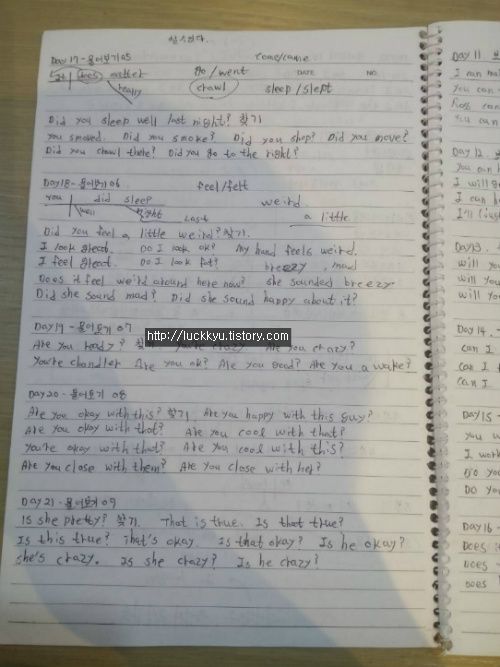 come/came
Day 17 - 물어보기 05
go/went
DATE
NO.
does matter
really
crawl
sleep/slept
Did you sleep well last night? 찾기
You smoked. Did you smoke? Did you shop? Did you move?
Did you crawl there? Did you go to the right?
Day 18 - 물어보기 06
feel/felt
you did sleep
weird
well
night
last
a little
Did you feel a little weird? 찾기.
I look great. Do I look ok? My hand feels weird.
I feel great. Do I look fat?
breezy, mad
Does it feel weird around here now? she sounded breezy
Did she sound mad? Did she sound happy about it?
Day 19 - 물어보기 07
http://luckkyu.tistory.com
Are you ready? You're crazy Are you crazy?
You're chandler Are you ok? Are you good? Are you a wake?
Day 20 - 물어보기 08
Are you okay with this? 찾기 Are you happy with this guy?
Are you okay with that? Are you cool with that?
You're okay with that? Are you cool with this?
Are you close with them? Are you close with her?
Day 21 - 물어보기 09
Is she pretty? 찾기. That is true. Is that true?
Is this true? That's okay Is that okay? Is he okay?
she's crazy. Is she crazy? Is he crazy?
Day 11
I can
You can
You can
Day 12
You can
I will
I can
I'll
Day 13
will you
will you
will you
Day 14
can I
can I
can I
Day 15
I work
Do you
Do you
Day 16
Does
Does
Does